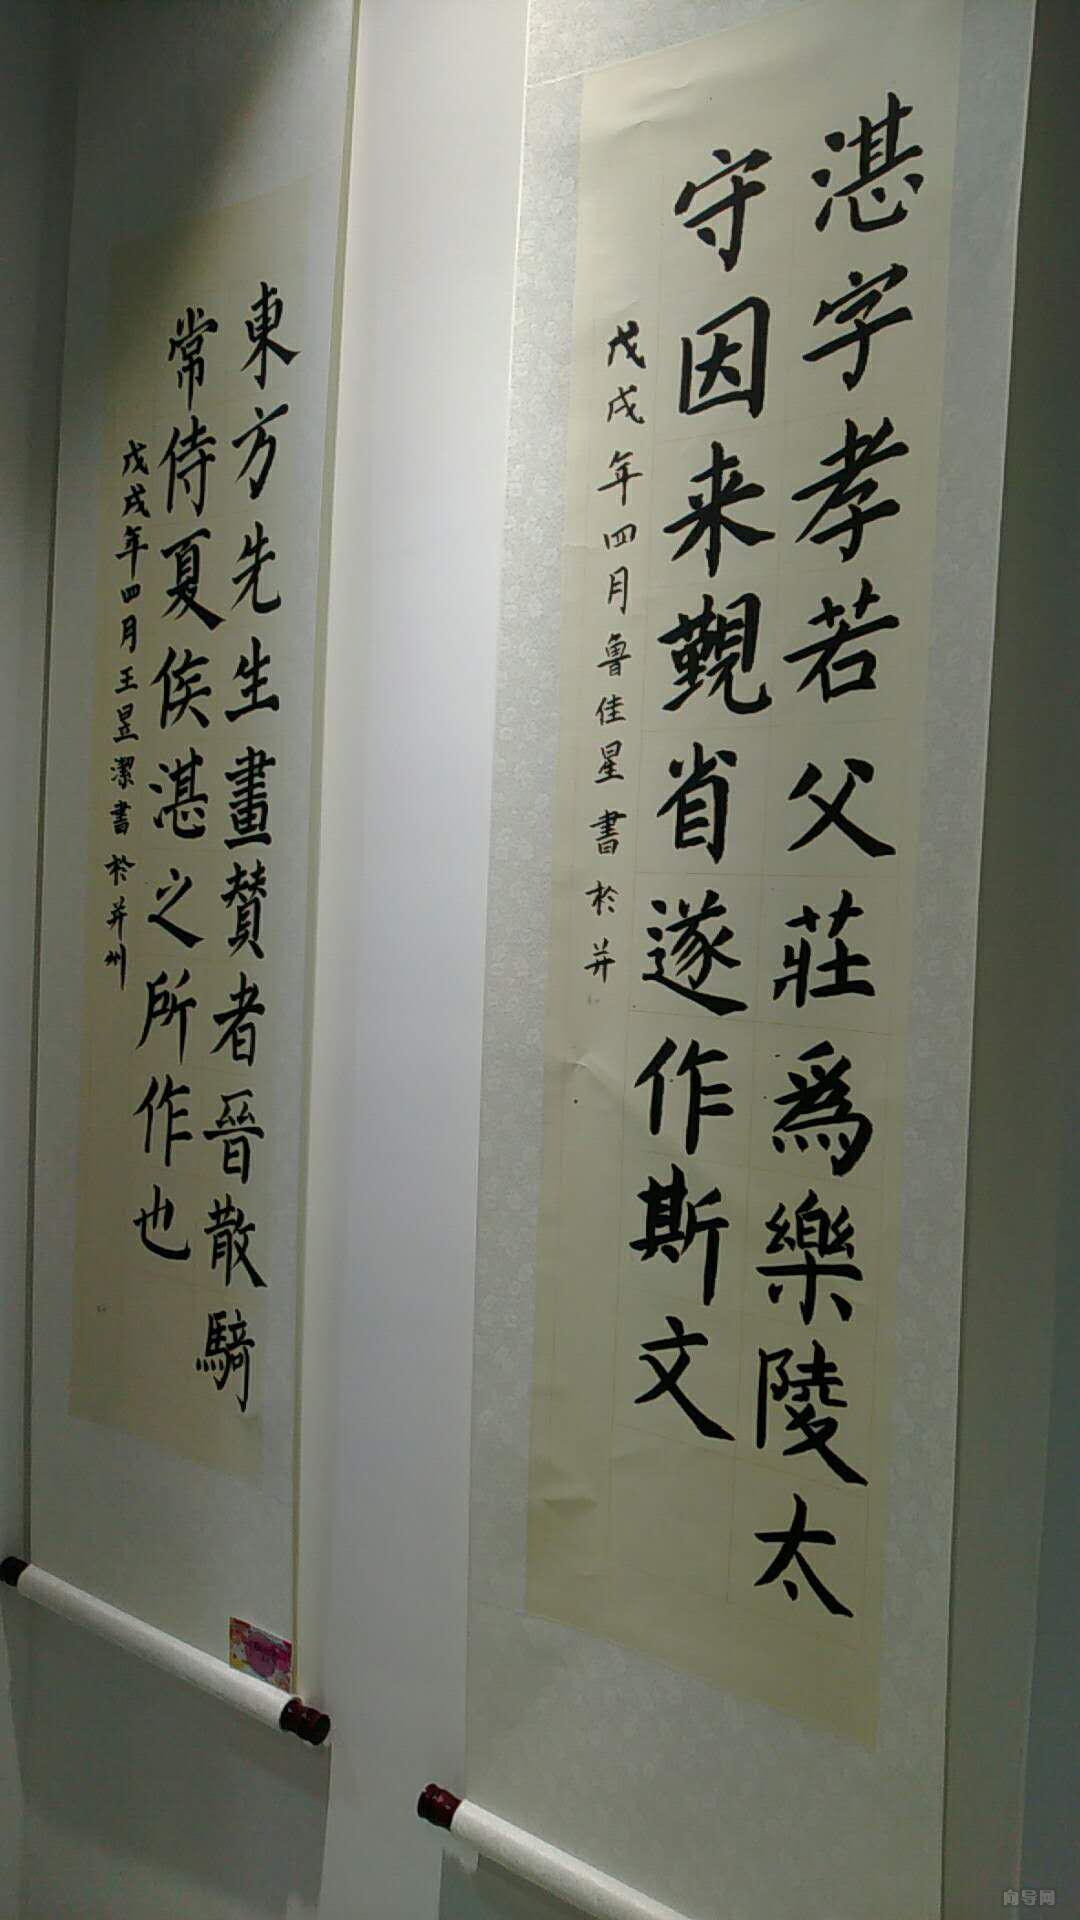 湛字孝若父莊為樂陵太
守因来覲省遂作斯文
戊戌年四月魯佳星書於并
東方先生畫贊者晉散騎
常侍夏侯湛之所作也
戊戌年四月王昱潔書於并州
向导网